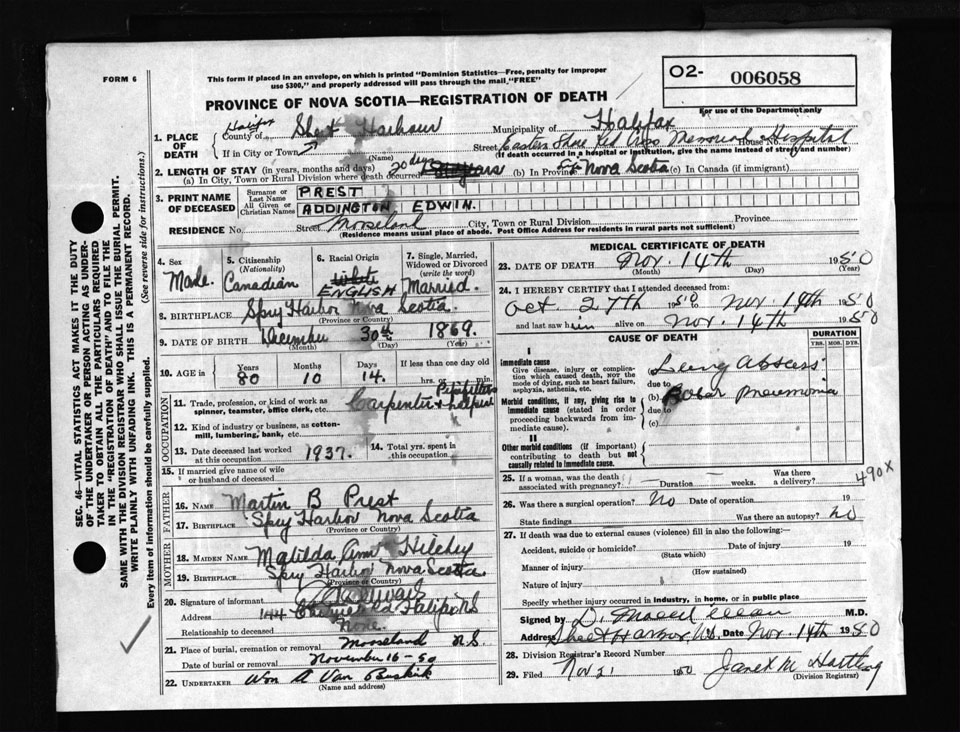 FORM 6
This form if placed in an envelope, on which is printed "Dominion Statistics—Free, penalty for improper
use $300," and properly addressed will pass through the mail "FREE"
O2- 006058
For use of the Department only
PROVINCE OF NOVA SCOTIA—REGISTRATION OF DEATH
SEC. 46—VITAL STATISTICS ACT MAKES IT THE DUTY
OF THE UNDERTAKER OR PERSON ACTING AS UNDER-
TAKER TO OBTAIN ALL THE PARTICULARS REQUIRED
IN THE "REGISTRATION OF DEATH" AND TO FILE THE
SAME WITH THE DIVISION REGISTRAR WHO SHALL ISSUE THE BURIAL PERMIT.
WRITE PLAINLY WITH UNFADING INK. THIS IS A PERMANENT RECORD.
Every item of information should be carefully supplied. (See reverse side for instructions.)
1. PLACE OF DEATH
Halifax
County of Sheet Harbour Municipality of Halifax
If in City or Town (Name) Street Eastern Shore Memorial Hospital House No.
(If death occurred in a hospital or institution, give the name instead of street and number)
2. LENGTH OF STAY (in years, months and days) 20 days
(a) In City, Town or Rural Division where death occurred years (b) In Province Life Nova Scotia (c) In Canada (if immigrant)
3. PRINT NAME OF DECEASED
Surname or Last Name PREST
All Given or Christian Names ADDINGTON EDWIN.
RESIDENCE No. Street Mooseland City, Town or Rural Division Province
(Residence means usual place of abode. Post Office Address for residents in rural parts not sufficient)
4. Sex Male
5. Citizenship (Nationality) Canadian
6. Racial Origin White ENGLISH
7. Single, Married, Widowed or Divorced (write the word) Married.
8. BIRTHPLACE Spry Harbor Nova Scotia.
(Province or Country)
9. DATE OF BIRTH December 30th 1869.
(Month) (Day) (Year)
10. AGE in Years 80 Months 10 Days 14. If less than one day old hrs. min.
OCCUPATION
11. Trade, profession, or kind of work as spinner, teamster, office clerk, etc. Carpenter &
12. Kind of industry or business, as cotton-mill, lumbering, bank, etc.
13. Date deceased last worked at this occupation 1937.
14. Total yrs. spent in this occupation
15. If married give name of wife or husband of deceased
FATHER
16. NAME Martin B Prest
17. BIRTHPLACE Spry Harbor Nova Scotia
(Province or Country)
MOTHER
18. MAIDEN NAME Matilda Ann Hilchey
19. BIRTHPLACE Spry Harbor Nova Scotia.
(Province or Country)
20. Signature of informant
Address 144 Halifax NS
Relationship to deceased None.
21. Place of burial, cremation or removal Mooseland N.S.
Date of burial or removal November 16-50
22. UNDERTAKER Wm A Van Buskirk
(Name and address)
MEDICAL CERTIFICATE OF DEATH
23. DATE OF DEATH Nov. 14th 1950
(Month) (Day) (Year)
24. I HEREBY CERTIFY that I attended deceased from:
Oct. 27th 1950 to Nov. 14th 1950
and last saw him alive on Nov. 14th 1950
CAUSE OF DEATH
DURATION
YRS. MOS. DYS.
I
Immediate cause
Give disease, injury or complication which caused death, not the mode of dying, such as heart failure, asphyxia, asthenia, etc.
Lung Abscess
due to
Morbid conditions, if any, giving rise to immediate cause (stated in order proceeding backwards from immediate cause).
(b) Lobar Pneumonia
due to
(c)
II
Other morbid conditions (if important) contributing to death but not causally related to immediate cause.
490X
25. If a woman, was the death associated with pregnancy? Duration weeks. Was there a delivery?
26. Was there a surgical operation? No Date of operation 19
State findings Was there an autopsy? No
27. If death was due to external causes (violence) fill in also the following:—
Accident, suicide or homicide? Date of injury 19
(State which)
Manner of injury
(How sustained)
Nature of injury
Specify whether injury occurred in industry, in home, or in public place
Signed by D. M.D.
Address Sheet Harbor, N.S. Date Nov. 14th 1950
28. Division Registrar's Record Number
29. Filed Nov 21 1950 Janet M Hartling
(Division Registrar)